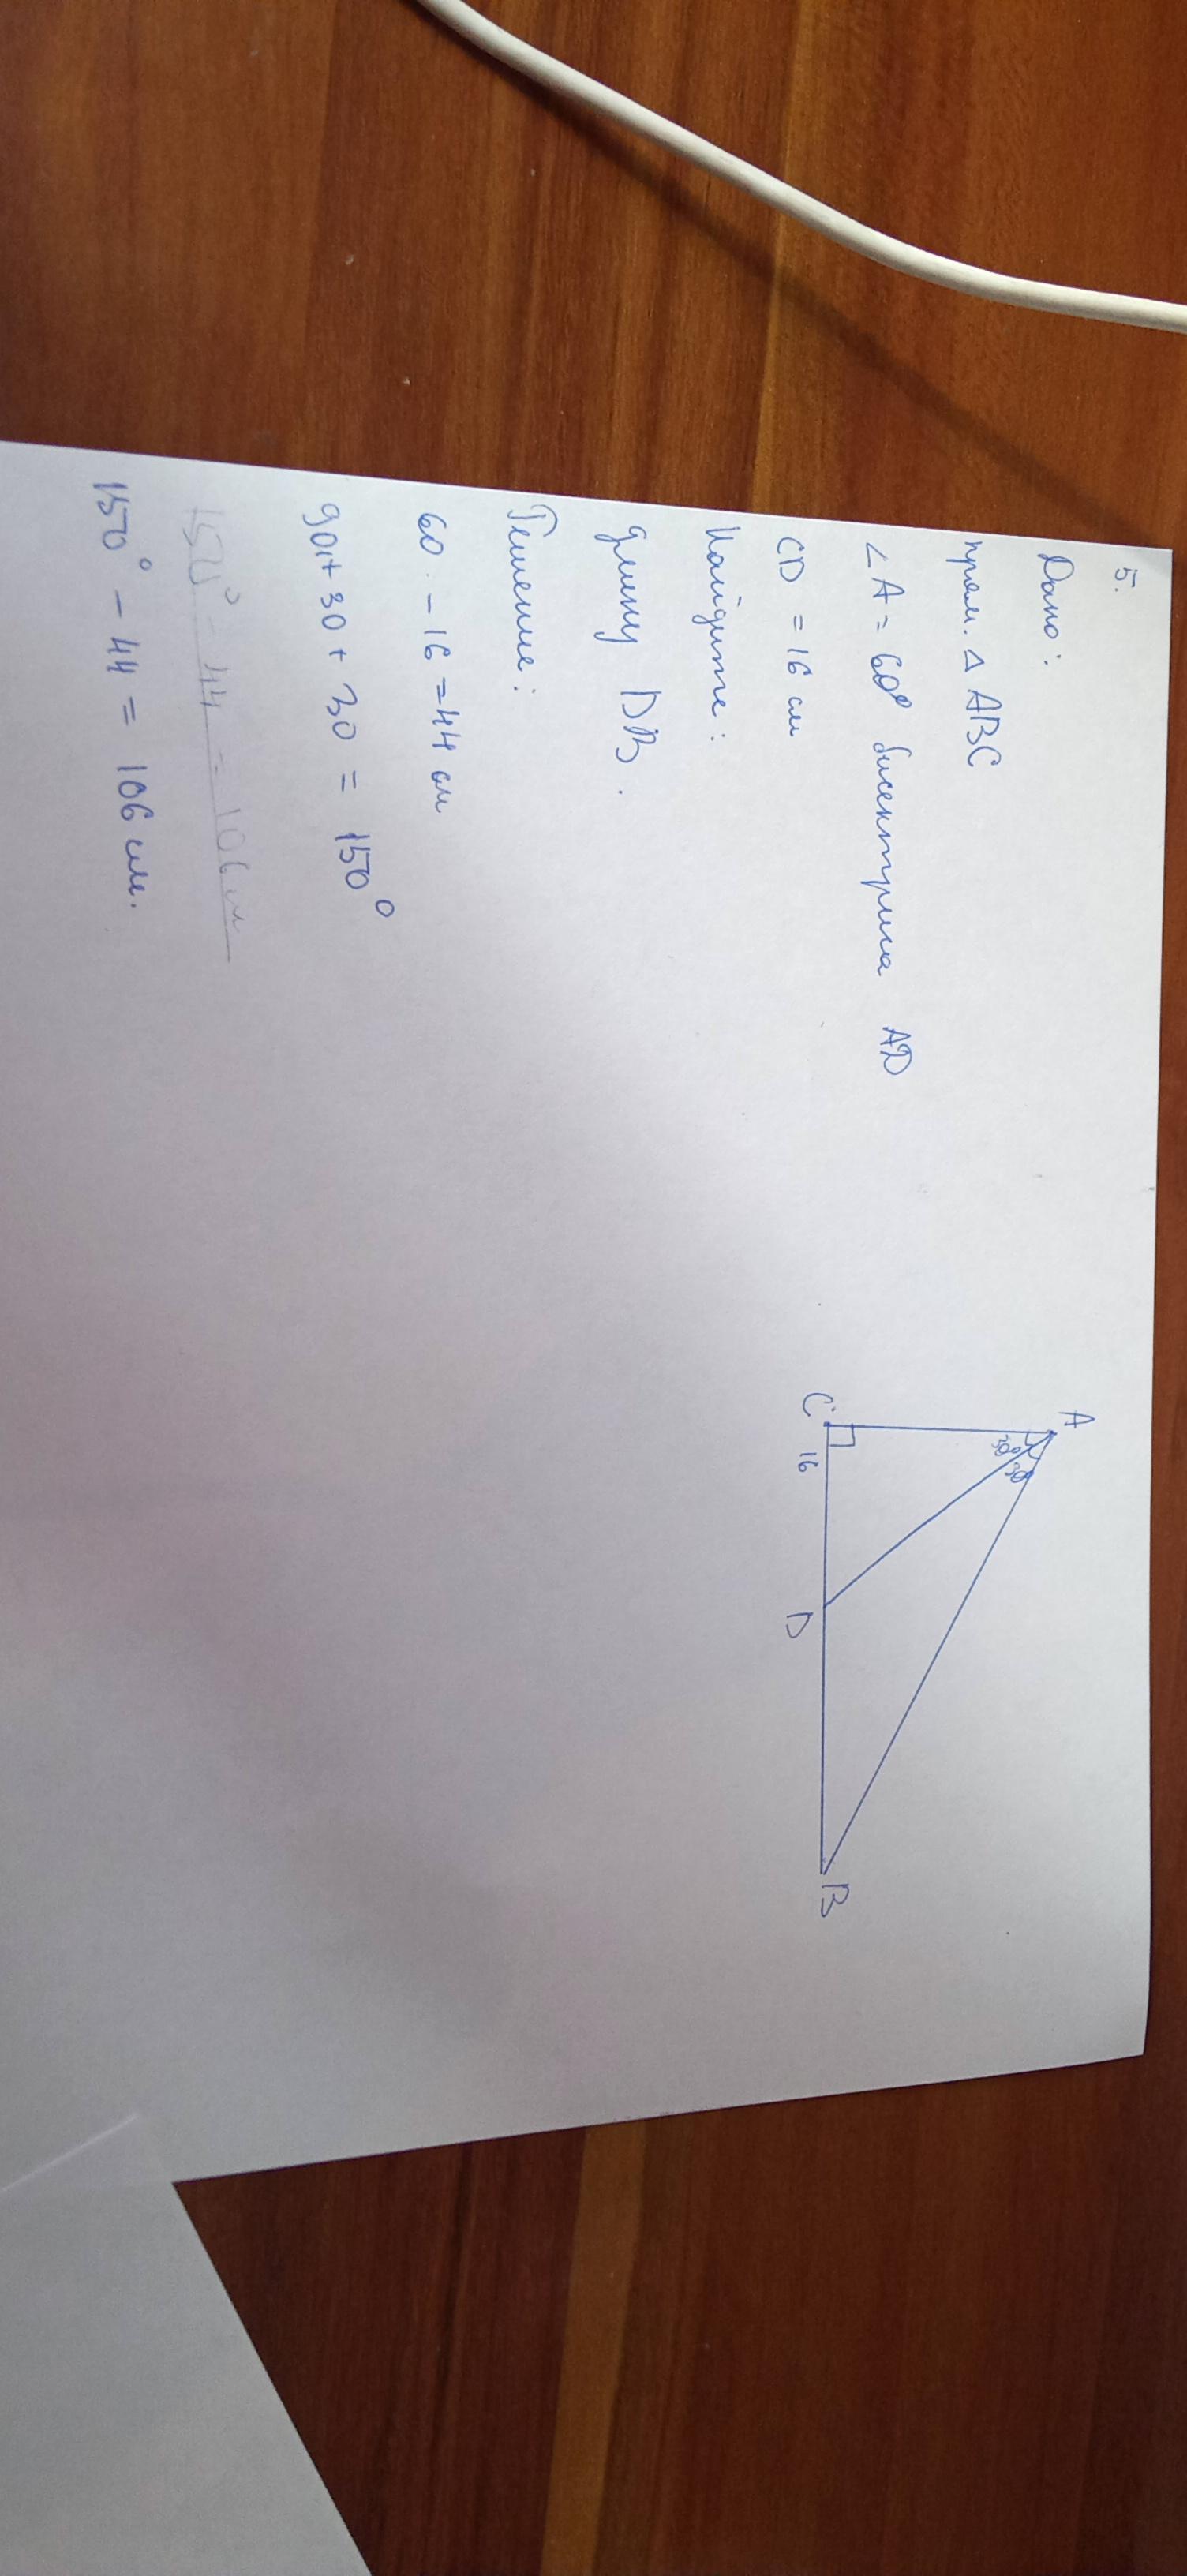 5.
Дано:
прям. △ ABC
∠A = 60° биссектриса AD
CD = 16 см
Найдите:
длину DB.
Решение:
60 - 16 = 44 см
90 + 30 + 30 = 150°
150° - 44 = 106 см
150° - 44 = 106 см.
A
30°
30°
C
16
D
B